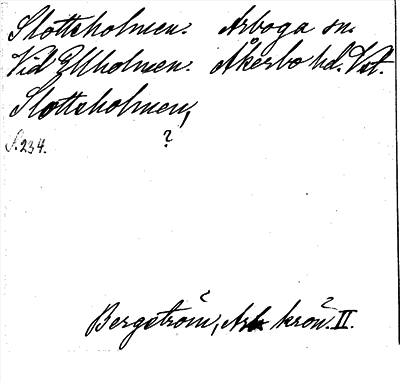 Slottsholmen. Arboga sn.
Vid Ellholmen. Åkerbo hd. Vstl.
Slottsholmen,
S. 234. ?
Bergström, Arb. krön. II.